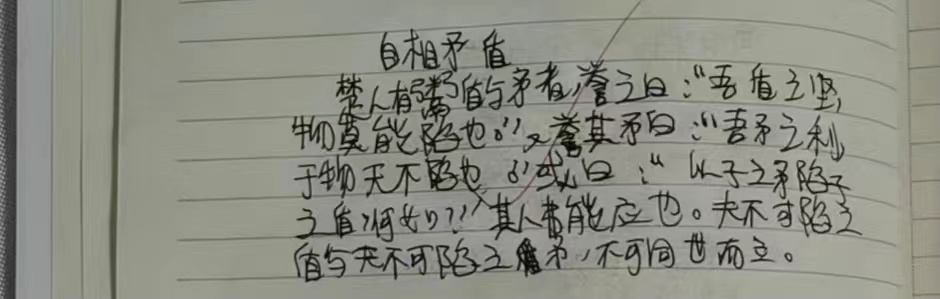 自相矛盾
楚人有鬻盾与矛者,誉之曰:"吾盾之坚,
物莫能陷也。"又誉其矛曰:"吾矛之利
于物无不陷也。"或曰:"以子之矛陷子
之盾,何如?"其人弗能应也。夫不可陷之
盾与无不可陷之矛,不可同世而立。